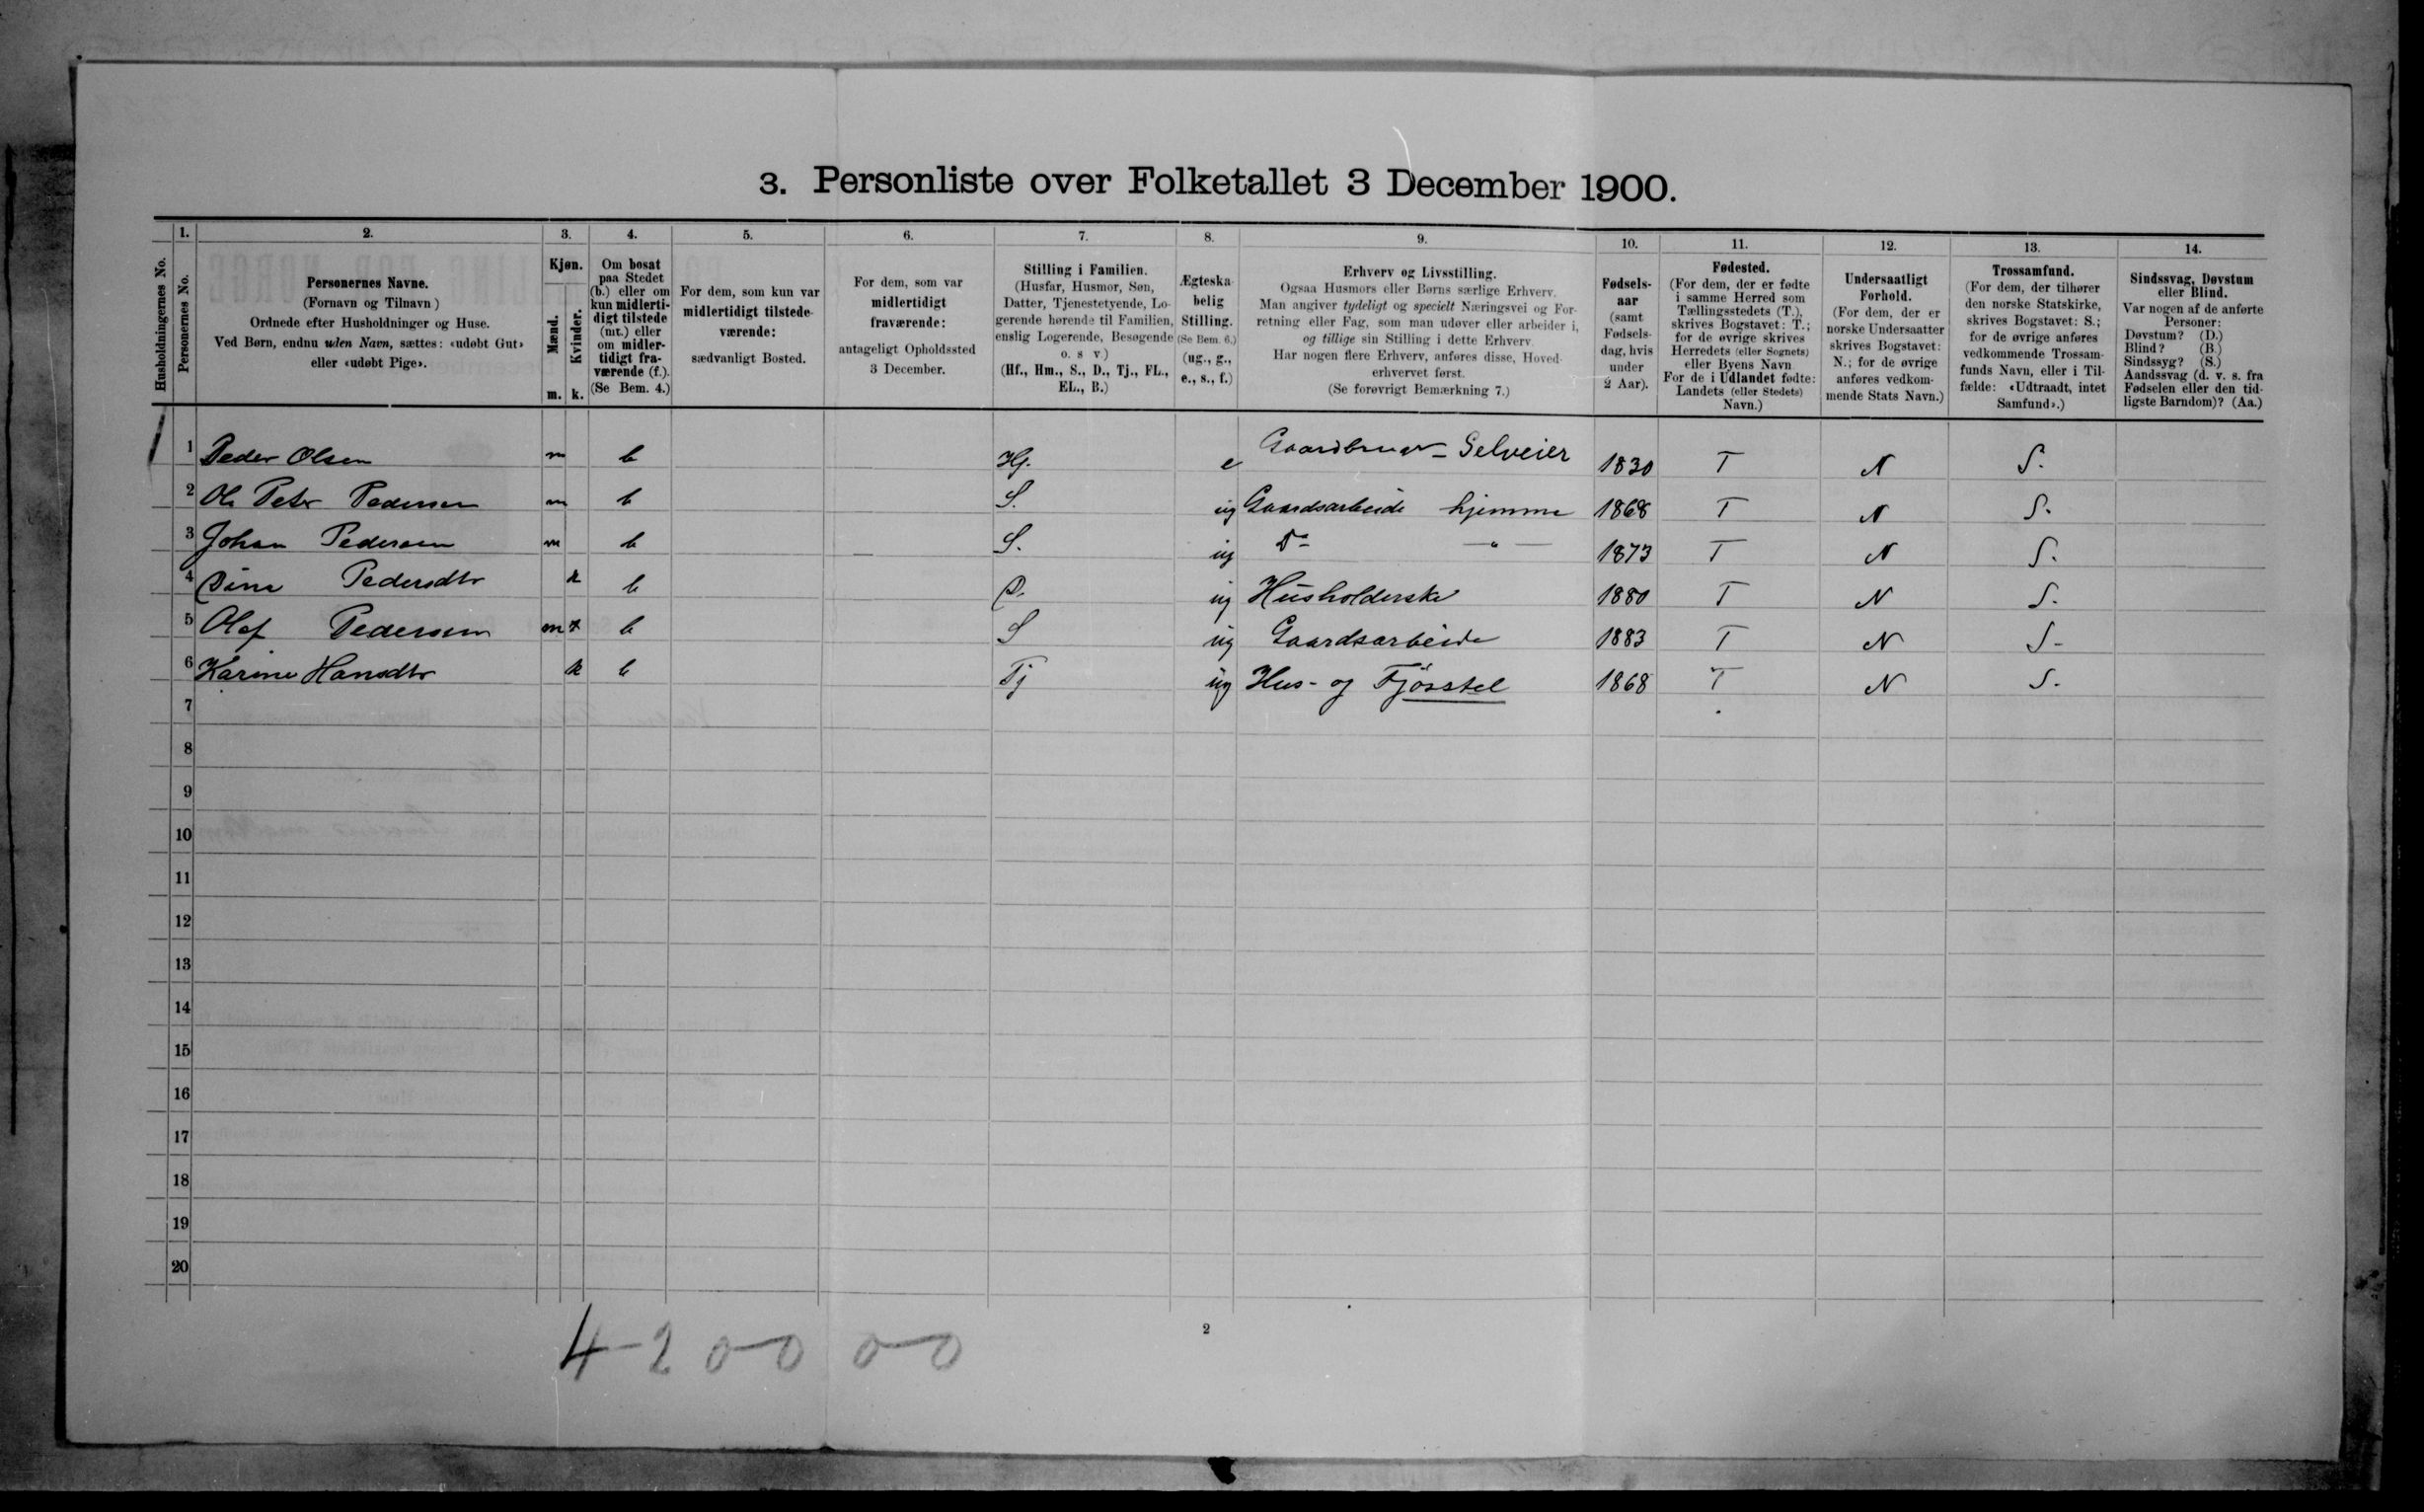 3. Personliste over Folketallet 3 December 1900.
Husholdningernes No.
1.
Personernes No.
2.
Personernes Navne.
(Fornavn og Tilnavn)
Ordnede efter Husholdninger og Huse.
Ved Børn, endnu uden Navn, sættes: «udøbt Gut»
eller «udøbt Pige».
3.
Kjøn.
Mænd.
Kvinder.
m. k.
4.
Om bosat
paa Stedet
(b.) eller om
kun midlerti-
digt tilstede
(mt.) eller
om midler-
tidigt fra-
værende (f.).
(Se Bem. 4.)
5.
For dem, som kun var
midlertidigt tilstede-
værende:
sædvanligt Bosted.
6.
For dem, som var
midlertidigt
fraværende:
antageligt Opholdssted
3 December.
7.
Stilling i Familien.
(Husfar, Husmor, Søn,
Datter, Tjenestetyende, Lo-
gerende hørende til Familien,
enslig Logerende, Besøgende
o. s v.)
(Hf., Hm., S., D., Tj., FL.,
EL., B.)
8.
Ægteska-
belig
Stilling.
(Se Bem. 6.)
(ug., g.,
e., s., f.)
9.
Erhverv og Livsstilling.
Ogsaa Husmors eller Børns særlige Erhverv.
Man angiver tydeligt og specielt Næringsvei og For-
retning eller Fag, som man udøver eller arbeider i,
og tillige sin Stilling i dette Erhverv.
Har nogen flere Erhverv, anføres disse, Hoved-
erhvervet først.
(Se forøvrigt Bemærkning 7.)
10.
Fødsels-
aar
(samt
Fødsels-
dag, hvis
under
2 Aar).
11.
Fødested.
(For dem, der er fødte
i samme Herred som
Tællingsstedets (T.),
skrives Bogstavet: T.;
for de øvrige skrives
Herredets (eller Sognets)
eller Byens Navn
For de i Udlandet fødte:
Landets (eller Stedets)
Navn.)
12.
Undersaatligt
Forhold.
(For dem, der er
norske Undersaatter
skrives Bogstavet:
N.; for de øvrige
anføres vedkom-
mende Stats Navn.)
13.
Trossamfund.
(For dem, der tilhører
den norske Statskirke,
skrives Bogstavet: S.;
for de øvrige anføres
vedkommende Trossam-
funds Navn, eller i Til-
fælde: «Udtraadt, intet
Samfund».)
14.
Sindssvag, Døvstum
eller Blind.
Var nogen af de anførte
Personer:
Døvstum? (D.)
Blind? (B.)
Sindssyg? (S.)
Aandssvag (d. v. s. fra
Fødselen eller den tid-
ligste Barndom)? (Aa.)
1 Peder Olsen m b Hf. e Gaardbruger - Selveier 1830 T N S.
2 Ole Peter Pedersen m b S. ug Gaardsarbeide hjemme 1868 T N S.
3 Johan Pedersen m b S. ug Do — " — 1873 T N S.
4 Dina Pedersdtr k b D. ug Husholderske 1880 T N S.
5 Olaf Pedersen m b S ug Gaardsarbeide 1883 T N S-
6 Karine Hansdtr k b Tj ug Hus- og Fjösstel 1868 T N S.
7
8
9
10
11
12
13
14
15
16
17
18
19
20
2
4-2 0-0 0-0